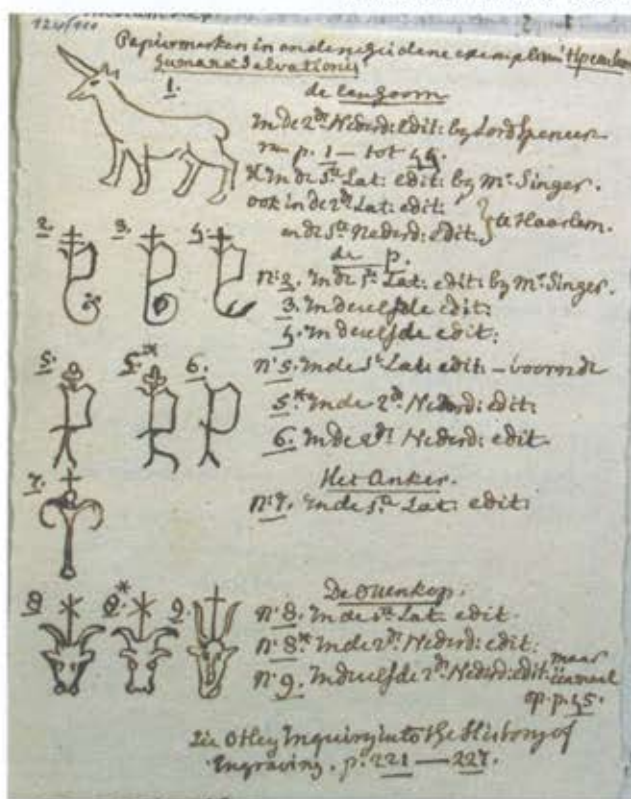 124/111
Papiermerken in onderscheidene exempl: van 't Specul:
humanæ Salvationis
1.
de eenhoorn
In de 2de Nederd: edit: by Lord Spencer
p. 1 — tot 44.
In de 1ste Lat: edit: by Mr. Singer.
ook in de 2de Lat: edit:
en de 1ste Nederd: edit. } te Haarlem.
de p.
2. 3. 4.
no: 2. In de 1ste Lat: edit: by Mr. Singer.
3. In deselfde edit:
4. In deselfde edit:
5. 5.* 6.
no. 5. In de 1ste Lat: edit: —
5.* In de 2de Nederd: edit:
6. In de 2de Nederd: edit.
Het Anker.
7.
no: 7. In de 1ste Lat: edit:
De Ossenkop.
8 8* 9
no. 8. In de 1ste Lat: edit.
no. 8* In de 2de Nederd: edit:
no. 9. In deselfde 2de Nederd: edit: maar
eenmaal
op. p. 45.
Zie Otley Inquiry into the History of
Engraving. p. 221 — 227.